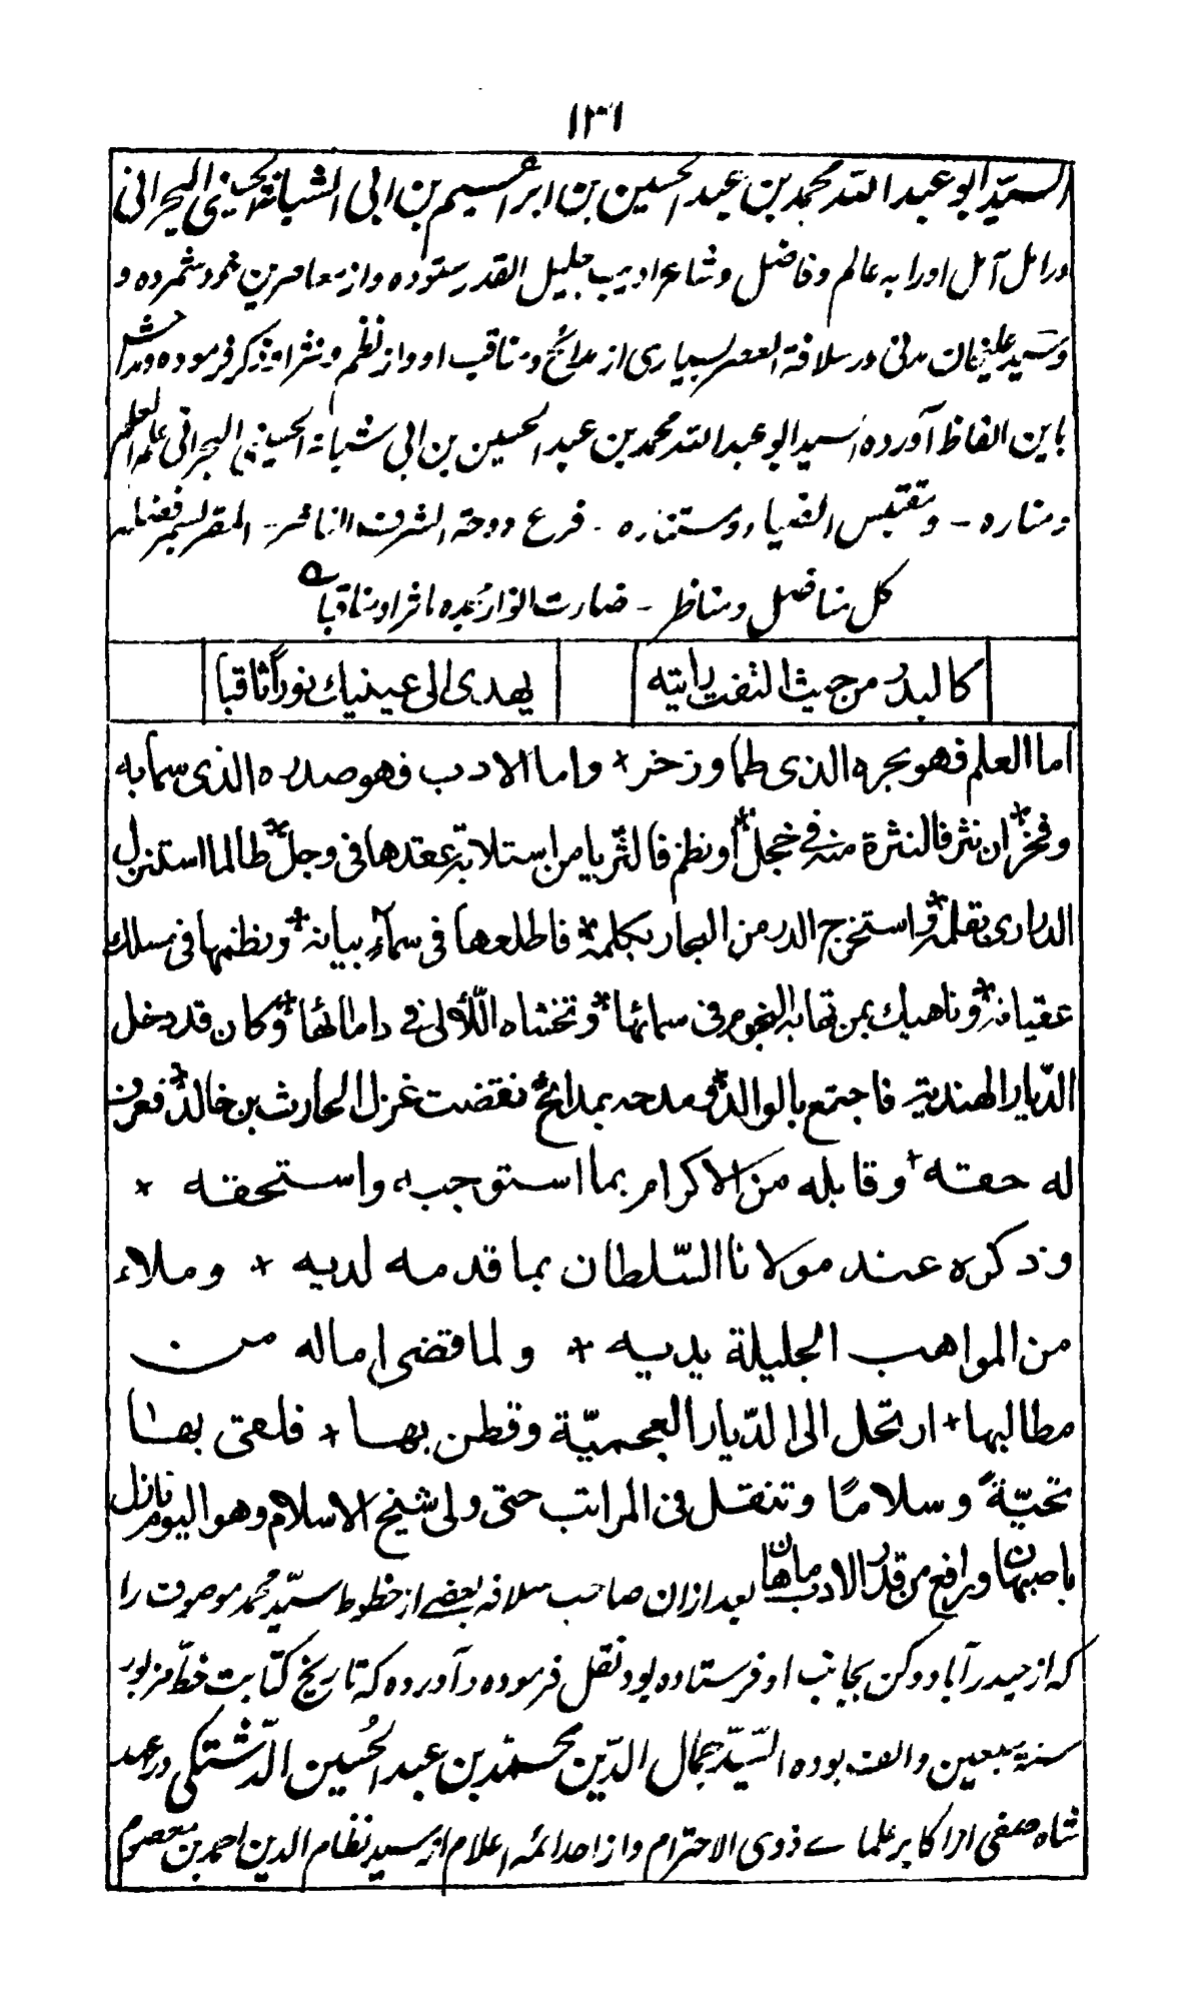 ١٣١
السيّد ابو عبد الله محمد بن عبد الحسين بن ابراهيم بن ابی الشبانة الحسيني البحرانی
در امل آمل اورا به عالم و فاضل و شاعر اديب جليل القدر ستوده و از معاصرين خود شمرده و
و سيد عليخان مدنی در سلافة العصر بسياری از مدائح و مناقب او و از نظم و نثر او ذكر فرموده و مدائحش
باين الفاظ آورده السيد ابو عبد الله محمد بن عبد الحسين بن ابی شبانة الحسينی البحرانی علم العلم
و مناره - و مقتبس الفضياء و مستناره - فرع دوحة الشرف الناضر - المقر لسمو فضله
كل مناضل و مناظر - ضارت انوار مجده مآثرا و مناقبا ٥
كالبدر من حيث التفت رايته يهدی الی عينيك نوراً ثاقبا
اما العلم فهو بحره الذی طما و زخر + و اما الادب فهو صدره الذی سما به
و فخر + ان نثر فالنثرة منه فی خجل + او نظم فالثريا من استلابه عقدها فی وجل + طالما استنزل
الدراری بقلمه + و استخرج الدر من البحار بكلمه + فاطلعها فی سمآء بيانه + و نظمها فی سلك
عقيانه + و ناهيك بمن تهابه النجوم فی سمائها + و تخشاه اللآلی فی دامائها + و كان قد دخل
الدّيار الهندية فاجتمع بالوالد + و مدحه بمدائح نقضت غزل الحارث بن خالد + فعرف
له حقه + و قابله من الاكرام بما استوجبه و استحقه +
و ذكره عند مولانا السّلطان بما قدمه لديه + و ملاء
من المواهب الجليلة يديه + و لما قضى اماله من
مطالبها + ارتحل الی الدّيار العجميّة و قطن بها + فلقی بها
تحيّةً و سلامًا و تنقل فی المراتب حتی ولی شيخ الاسلام و هو اليوم نازل
باصبهان و رافع من قدر الادب ما هان بعد ازان صاحب سلافه بعضے از خطوط سيّد محمد موصوف را
كه از حيدرآباد دكن بجانب او فرستاده بود نقل فرموده و آورده كه تاريخ كتابت خطّ مزبور
سنة سبعين و الف بوده السّيّد جمال الدّين محمد بن عبد الحُسين الدّشتكی در عهد
شاه صفی از اكابر علماے ذوی الاحترام و از احد ائمه اعلام از سيد نظام الدين احمد بن معصوم